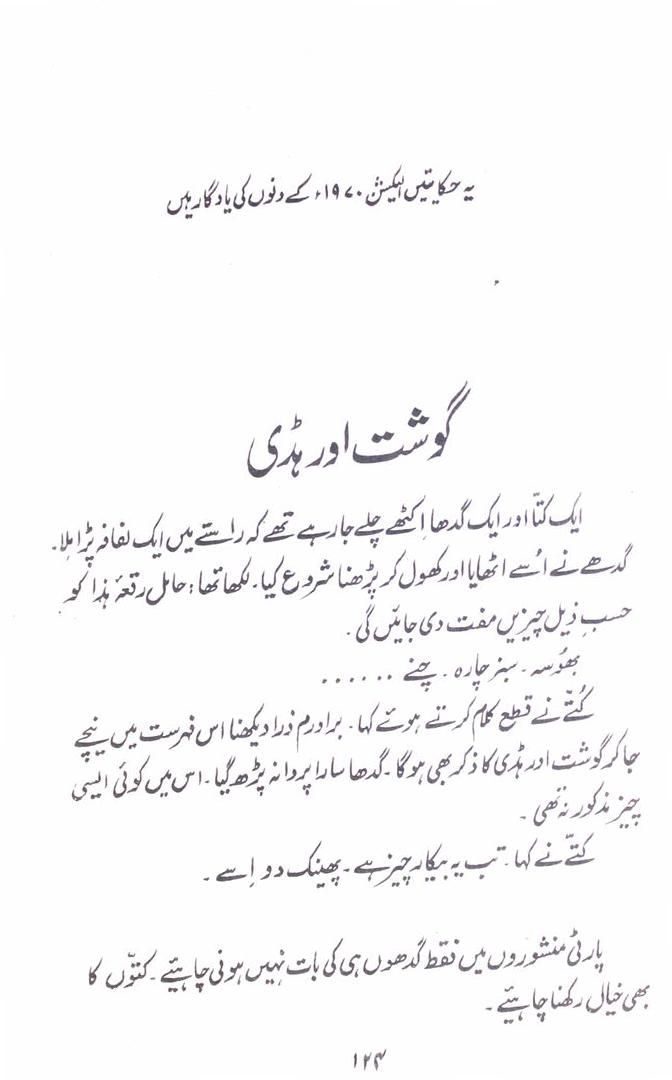 یہ حکایتیں الیکشن ۱۹۷۰ء کے دنوں کی یادگار ہیں
گوشت اور ہڈی
ایک کتّا اور ایک گدھا اِکٹھے چلے جا رہے تھے کہ راستے میں ایک لفافہ پڑا مِلا۔
گدھے نے اُسے اٹھایا اور کھول کر پڑھنا شروع کیا۔ لکھا تھا: حامل رقعۂ ہٰذا کو
حسبِ ذیل چیزیں مفت دی جائیں گی۔
بھُوسہ۔ سبز چارہ۔ چنے ......
کُتّے نے قطع کلام کرتے ہوئے کہا۔ برادرم ذرا دیکھنا اس فہرست میں نیچے
جا کر گوشت اور ہڈی کا ذکر بھی ہو گا۔ گدھا سارا پروانہ پڑھ گیا۔ اس میں کوئی ایسی
چیز مذکور نہ تھی۔
کتّے نے کہا۔ تب یہ بیکار چیز ہے۔ پھینک دو اِسے۔
پارٹی منشوروں میں فقط گدھوں ہی کی بات نہیں ہونی چاہیئے۔ کتّوں کا
بھی خیال رکھنا چاہیئے۔
۱۲۴